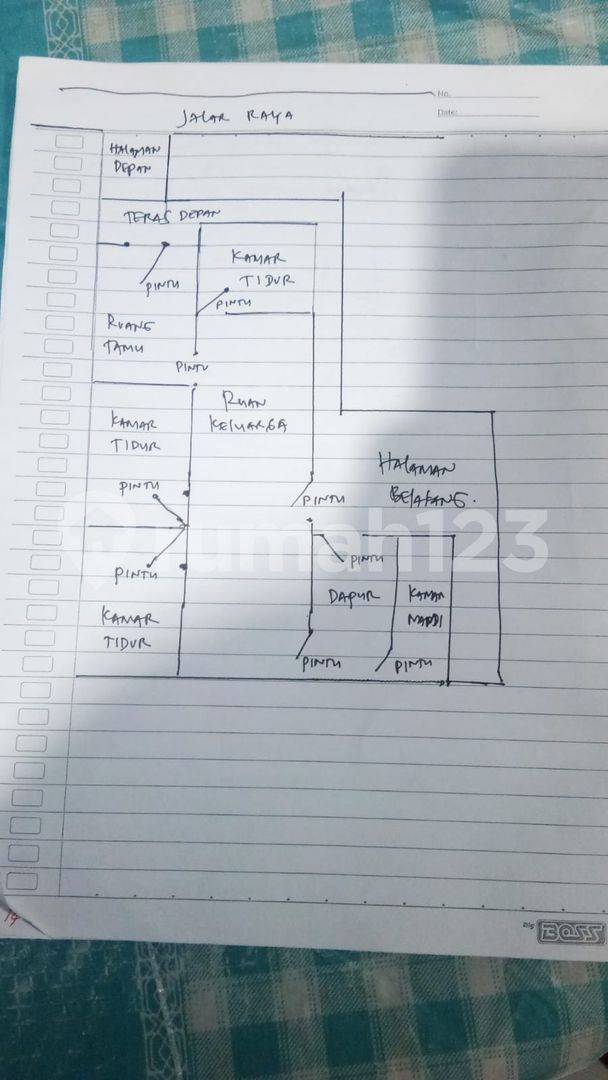 No.
Date:
JALAN RAYA
HALAMAN
DEPAN
TERAS DEPAN
KAMAR
TIDUR
PINTU
PINTU
RUANG
TAMU
PINTU
RUAN
KELUARGA
KAMAR
TIDUR
HALAMAN
BELAKANG.
PINTU
PINTU
rumah123
PINTU
PINTU
DAPUR
KAMAR
MANDI
KAMAR
TIDUR
PINTU
PINTU
19
BIG BOSS